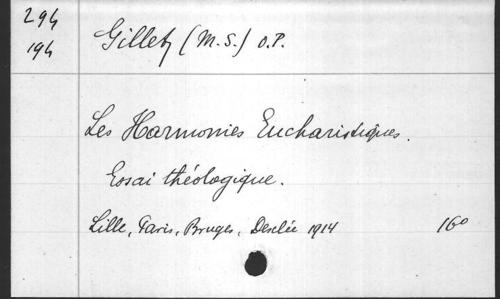 294
194
Gillet (M.S.) O.P.
Les Harmonies Eucharistiques.
Essai théologique.
Lille, Paris, Bruges, Desclée 1914 16°